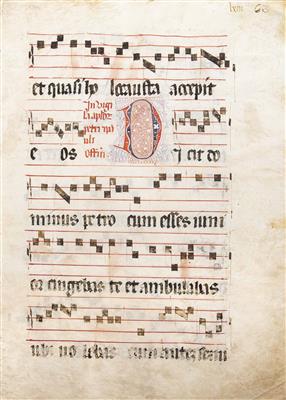 lxiii 63
et quasi holocausta accepit
In vigi
lia aplor
petri
offm
e os Dicit do
minus petro cum esses iuni
or cingebas te et ambulabas
ubi volebas cum autem senu